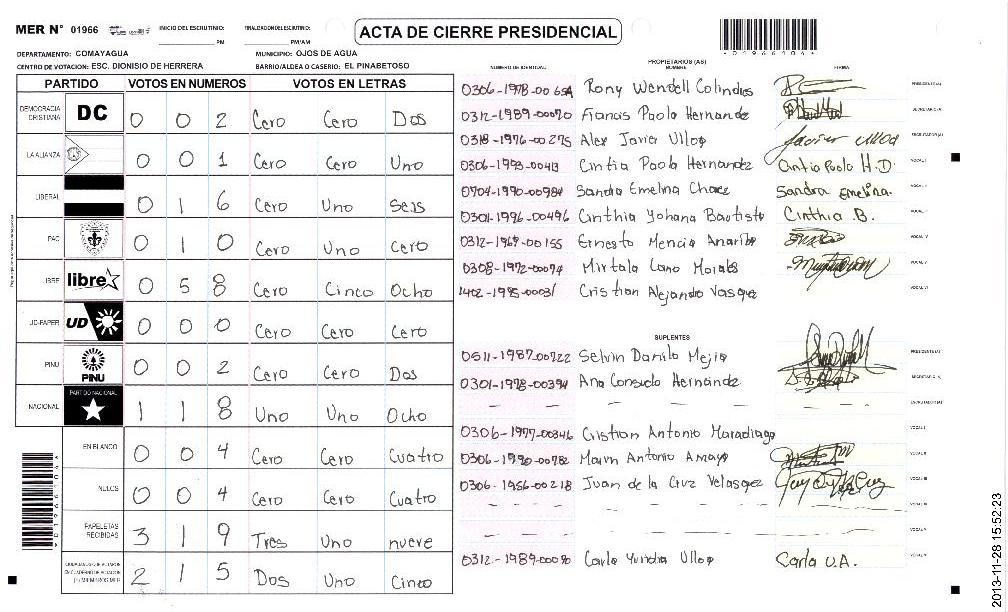 MER N° 01966 INICIO DEL ESCRUTINIO: PM FINALIZACION DEL ESCRUTINIO: PM/AM
ACTA DE CIERRE PRESIDENCIAL
DEPARTAMENTO: COMAYAGUA MUNICIPIO: OJOS DE AGUA
CENTRO DE VOTACION: ESC. DIONISIO DE HERRERA BARRIO/ALDEA O CASERIO: EL PINABETOSO
PARTIDO VOTOS EN NUMEROS VOTOS EN LETRAS
DEMOCRACIA CRISTIANA DC 0 0 2 Cero Cero Dos
LA ALIANZA 0 0 1 Cero Cero Uno
LIBERAL 0 1 6 Cero Uno Seis
PAC 0 1 0 Cero Uno Cero
LIBRE libre 0 5 8 Cero Cinco Ocho
UD-FAPER UD 0 0 0 Cero Cero Cero
PINU PINU 0 0 2 Cero Cero Dos
NACIONAL PARTIDO NACIONAL 1 1 8 Uno Uno Ocho
EN BLANCO 0 0 4 Cero Cero Cuatro
NULOS 0 0 4 Cero Cero Cuatro
PAPELETAS RECIBIDAS 3 1 9 Tres Uno nueve
2 1 5 Dos Uno Cinco
PROPIETARIOS (AS)
NUMERO DE IDENTIDAD NOMBRE FIRMA
0306-1978-00654 Rony Wendell Colindres PRESIDENTE(A)
0312-1989-00070 Francis Paola Hernande SECRETARIO(A)
0318-1976-00275 Alex Javier Ulloa Javier Ulloa ESCRUTADOR(A)
0306-1993-00413 Cintia Paola Hernandez Cintia Paola H.D. VOCAL I
0704-1990-00984 Sandra Emelina Chacc Sandra Emelina. VOCAL II
0301-1996-00496 Cinthia Yohana Bautista Cinthia B. VOCAL III
0312-1969-00155 Ernesto Mencia Anariba VOCAL IV
0308-1972-00074 Mirtala Cano Morales VOCAL V
1402-1995-00031 Cristian Alejando Vasque VOCAL VI
SUPLENTES
0511-1987-00722 Selvin Danilo Mejia PRESIDENTE(A)
0301-1978-00394 Ana Consuelo Hernande SECRETARIO(A)
— — — — — — ESCRUTADOR(A)
0306-1977-00346 Cristian Antonio Maradiaga VOCAL I
0306-1990-00782 Marvin Antonio Amaya VOCAL II
0306-1956-00218 Juan de la Cruz Velasquez VOCAL III
— — — — — — VOCAL IV
— — — — — — VOCAL V
0312-1989-00090 Carla Yunara Ulloa Carla U.A. VOCAL VI
2013-11-28 15:52:23